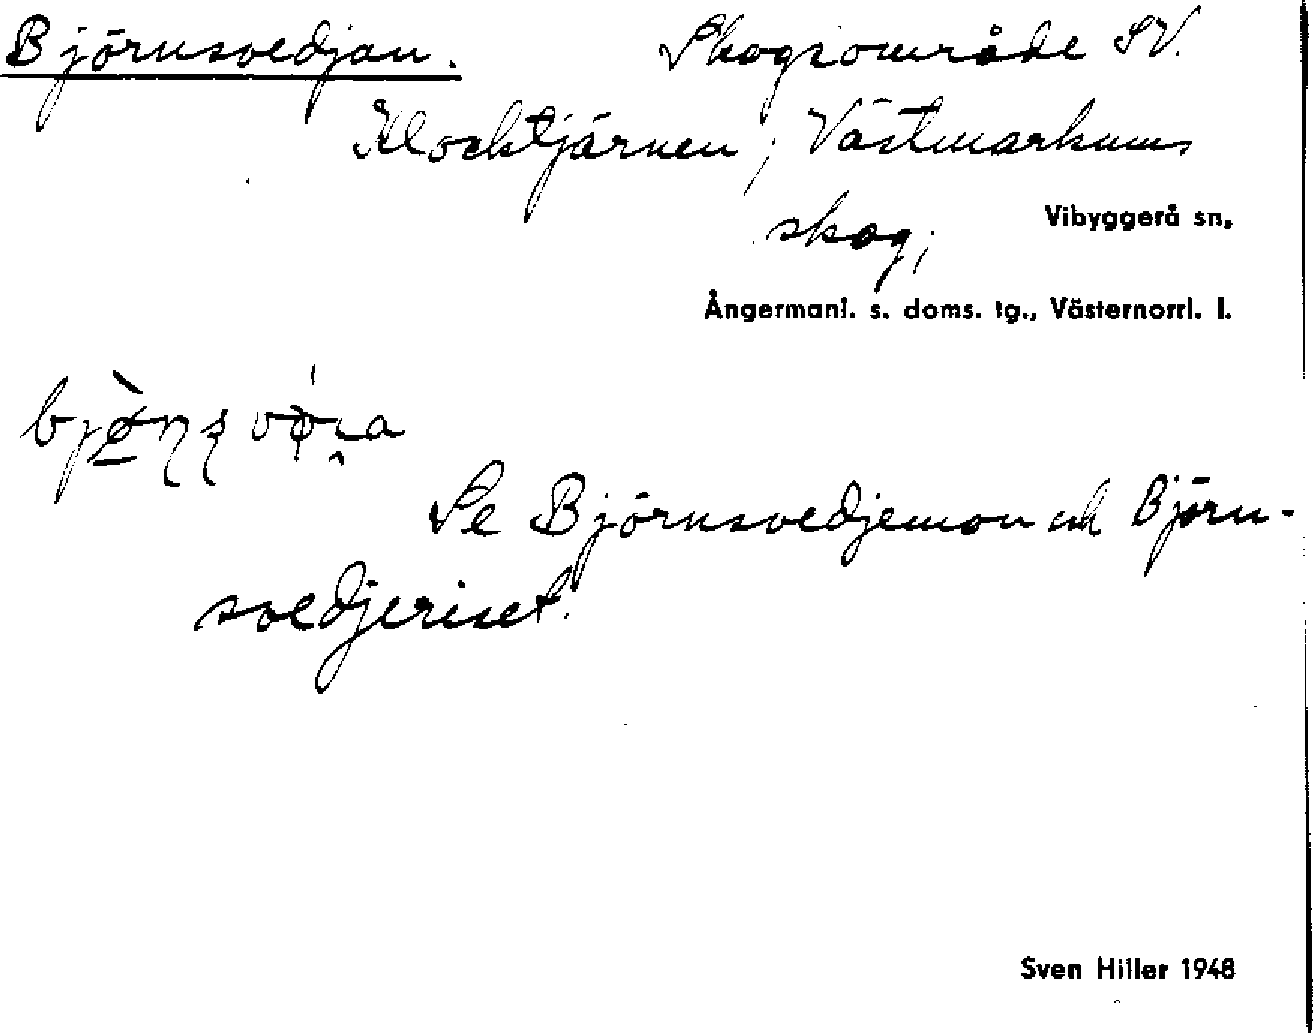 Björnsvedjan. Skogsområde SV.
Klocktjärnen; Västmarkums
skog;
Vibyggerå sn,
Ångermanl. s. doms. tg., Västernorrl. l.
Se Björnsvedjemon och Björn-
svedjeriset.
Sven Hiller 1948